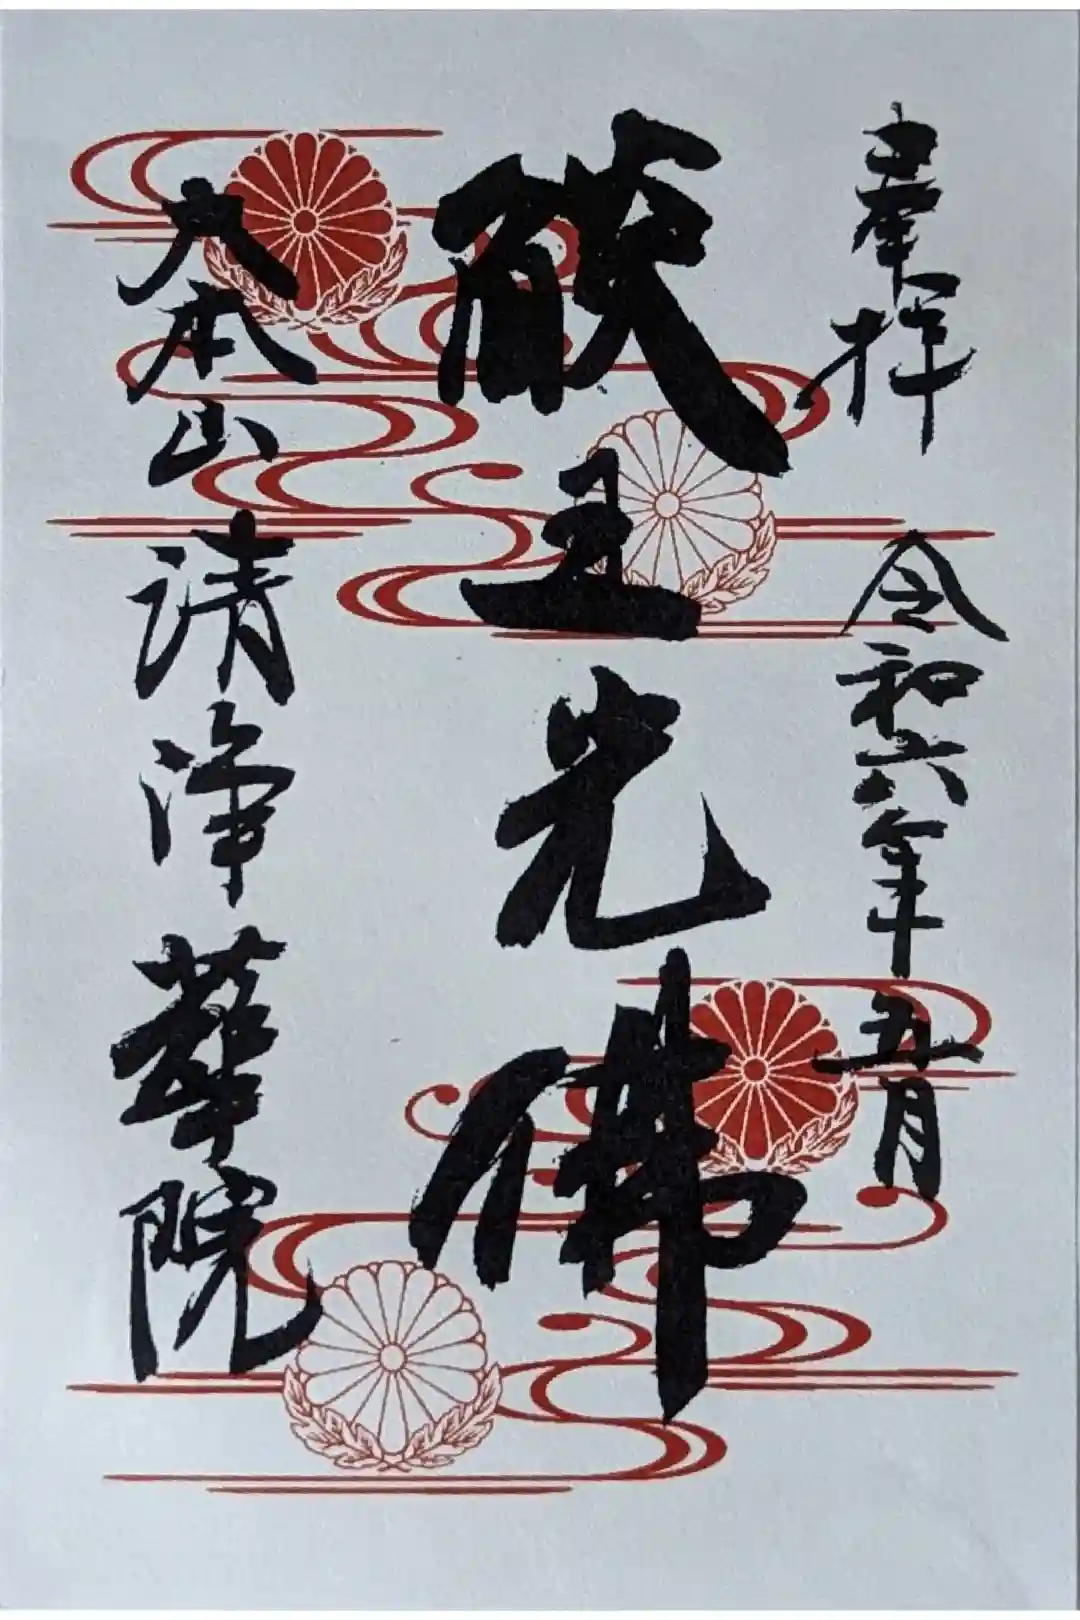 奉拝 令和六年五月
燄王光佛
大本山 清浄華院